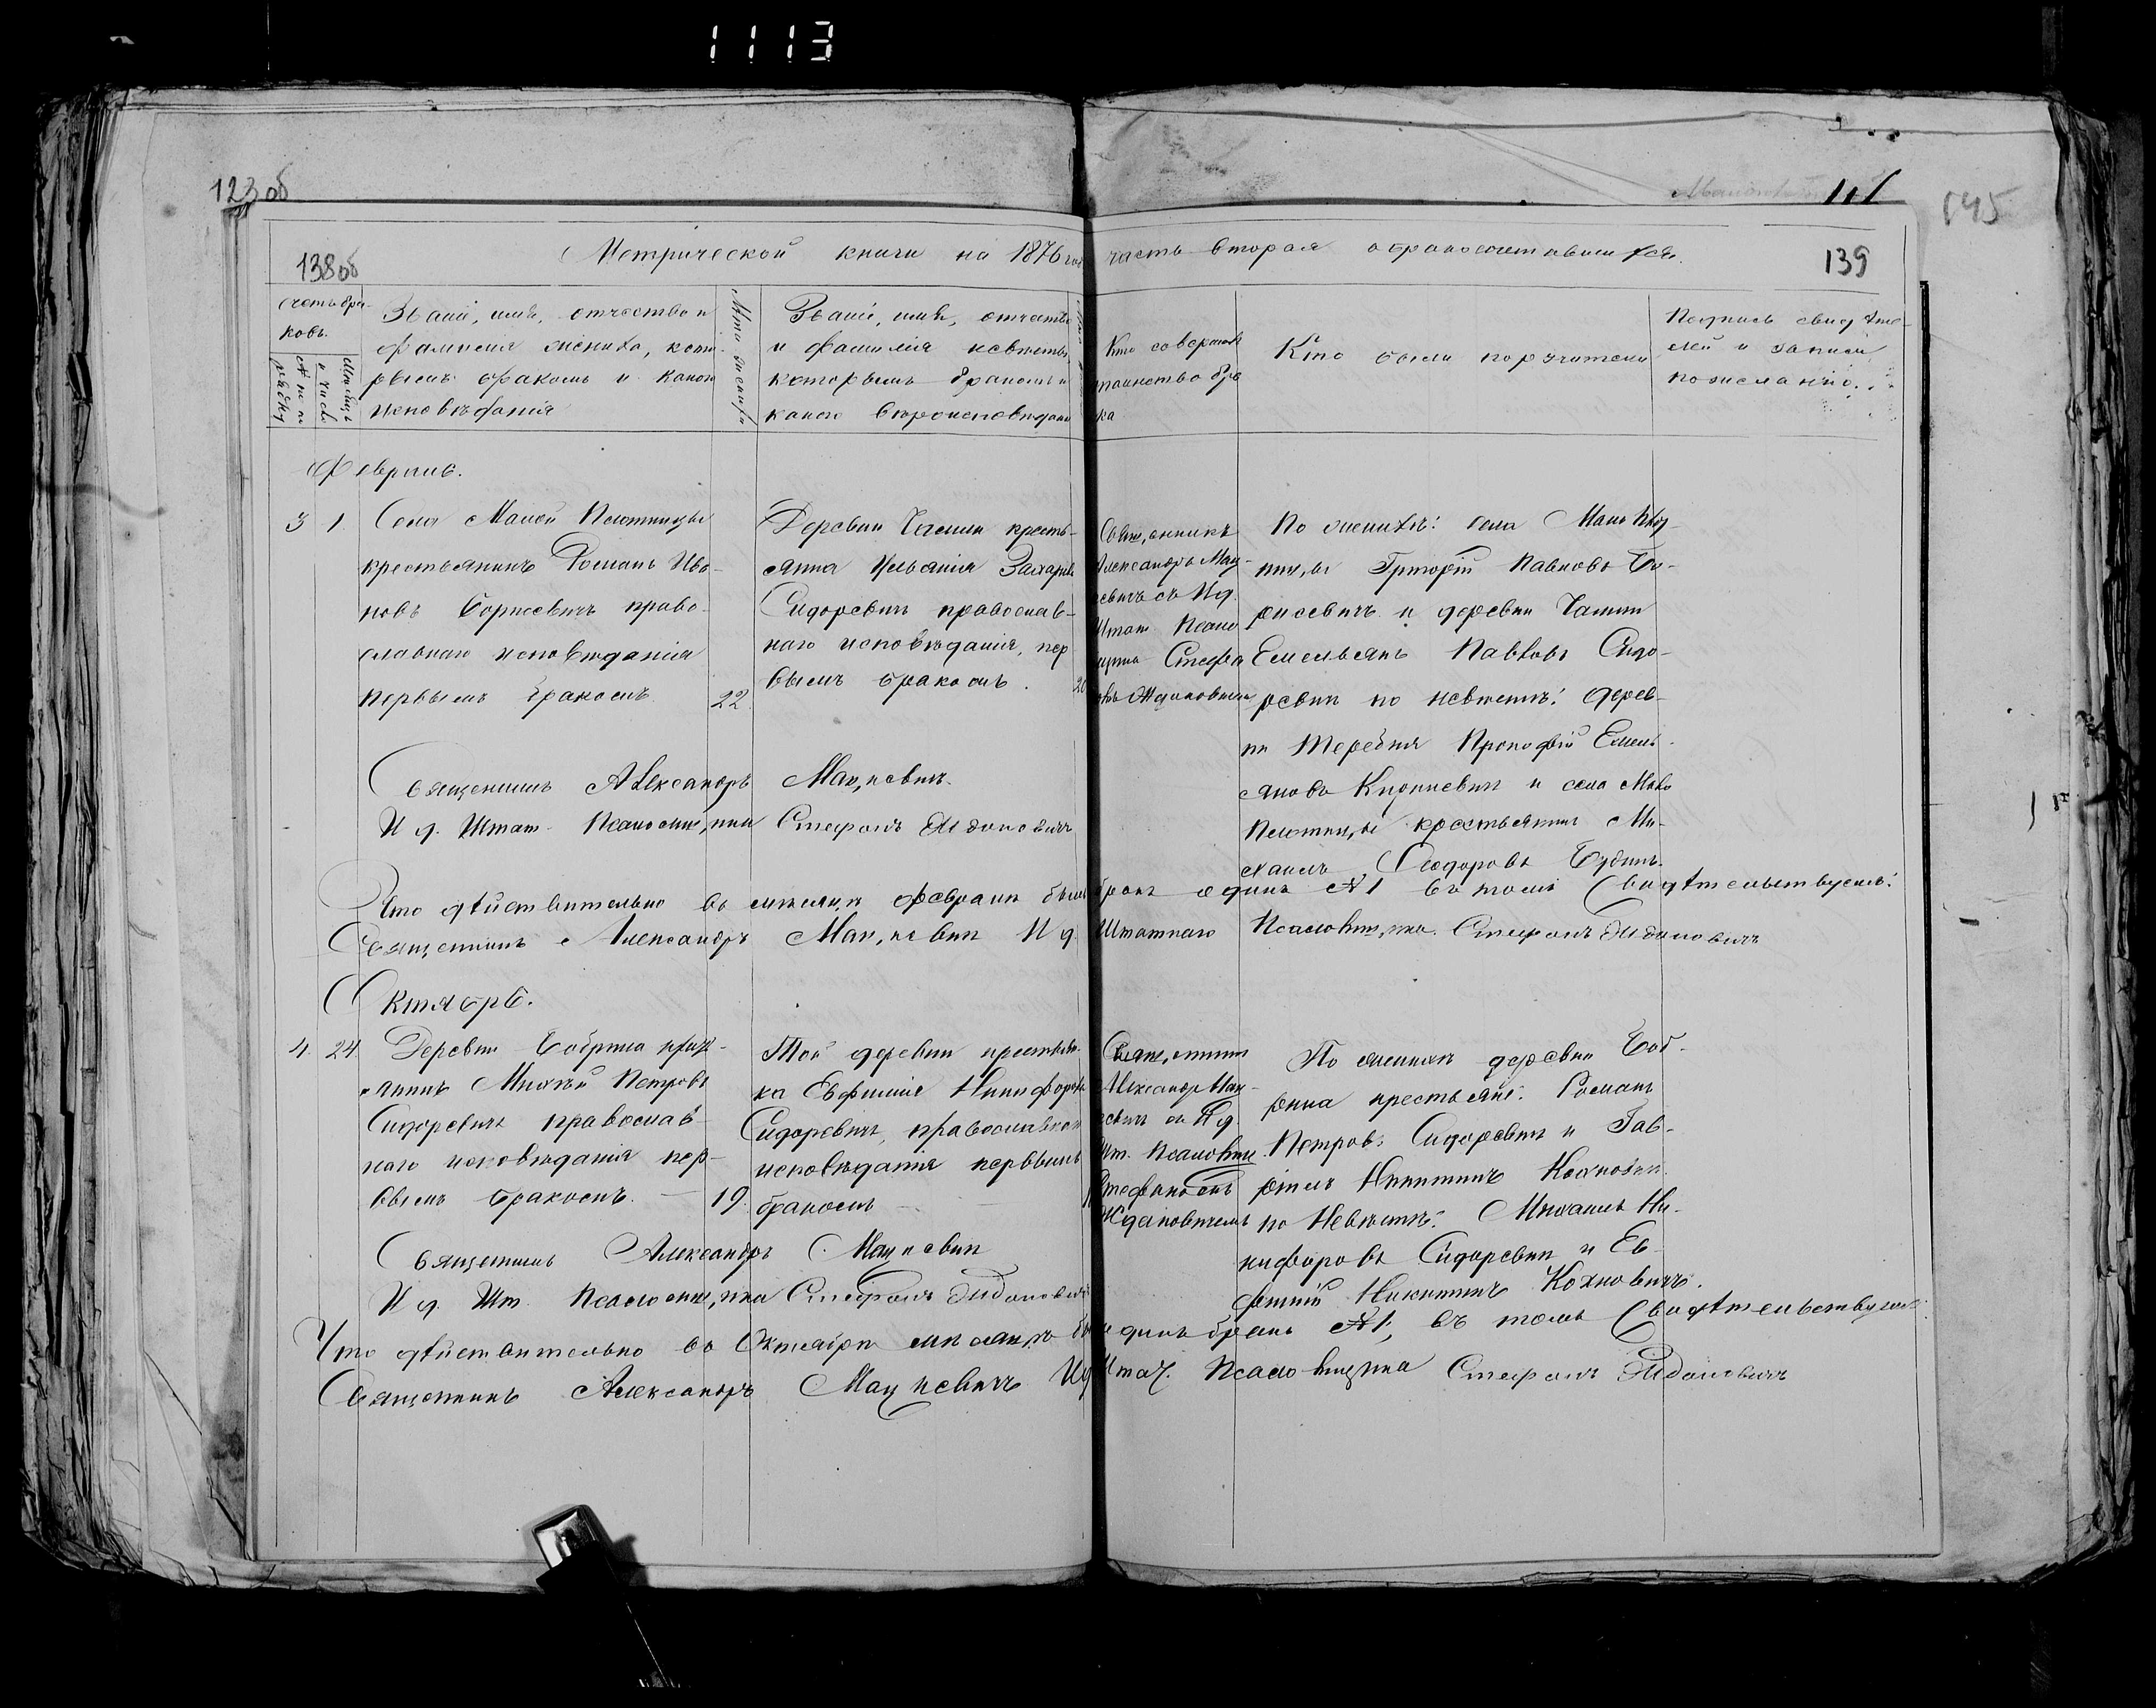 1113
123 об
111
145
138 об
Метрической книги на 1876 год часть вторая о бракосочетавшихся.
139
Счетъ бра-
ковъ.
Званіе, имя, отчество и
фамилія жениха, кото-
рымъ бракомъ и какого
исповѣданія
Лѣта жениха
Званіе, имя, отчество
и фамилія невѣсты,
которымъ бракомъ и
какого вѣроисповѣданія
Кто совершалъ
таинство бра
ка
Кто были поручители
Подпись свидѣте-
лей и записи
по желанію.
Февраль.
3 1
Села Малой Плотницы
крестьянинъ Романъ Ива-
новъ Борисевичъ право-
славнаго исповѣданія
первымъ бракомъ 22
Деревни крестьянка
Ульянія
Сидоревичъ православ-
наго исповѣданія, пер
вымъ бракомъ. 20
Священникъ
Александръ Мац-
евичъ съ И д.
Штат Псало
мщика Стефа
номъ Ждановичемъ
По женихѣ: села Мало Плот-
ницы Григорій Павловъ Бо-
рисевичъ и деревни
Емельянъ Павловъ Сидо-
ревичъ по невѣстѣ: дерев-
ни Теребня Прокофій Емель-
яновъ и села Мало
Плотницы крестьянинъ Ми-
хаилъ Ѳеодоровъ
Священникъ Александръ Мацкевичъ.
И д. Штат. Псаломщика Стефанъ Ждановичъ
Что дѣйствительно въ мѣсяцѣ февралѣ былъ бракъ одинъ №1 въ томъ Свидѣтельствуемъ:
Священникъ Александръ Мацкевичъ И д. Штатнаго Псаломщика Стефанъ Ждановичъ
Октябрь.
4. 24
Деревни Бобрика крест-
янинъ Михей Петровъ
Сидоревичъ православ-
наго исповѣданія пер-
вымъ бракомъ. — 19.
Той деревни крестьян-
ка Евфимія Никифорова
Сидоревичъ, православнаго
исповѣданія первымъ
бракомъ
Священникъ
Александръ Мац-
евичъ съ И д.
Шт. Псаломщ.
Стефаномъ
Ждановичемъ
По женихѣ деревни Боб-
рика крестьяне: Романъ
Петровъ Сидоревичъ и Гав-
ріилъ Никитинъ Кохновичъ
по Невѣстѣ: Михаилъ Ни-
кифоровъ Сидоревичъ и Ев-
фимій Никитинъ Кохновичъ.
Священникъ Александръ Мацкевичъ
И д. Шт. Псаломщика Стефанъ Ждановичъ
Что дѣйствительно въ Октябрѣ мѣсяцѣ былъ одинъ бракъ №1, въ томъ Свидѣтельствуемъ:
Священникъ Александръ Мацкевичъ И д Штат. Псаломщика Стефанъ Ждановичъ